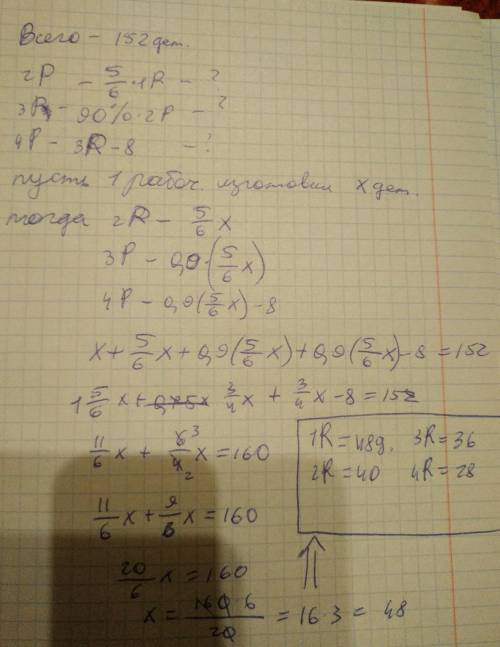 Всего – 152 дет.
2P – 5/6 · 1R – ?
3R – 90% · 2P – ?
4P – 3R – 8 – ?
пусть 1 рабоч. изготовил x дет.
тогда 2R – 5/6 x
3P – 0,9 · (5/6 x)
4P – 0,9 (5/6 x) – 8
x + 5/6 x + 0,9 (5/6 x) + 0,9 (5/6 x) – 8 = 152
1 5/6 x + 3/4 x + 3/4 x – 8 = 152
11/6 x + 6 3/4 2 x = 160
11/6 x + 9/6 x = 160
20/6 x = 160
x = 160 · 6/20 = 16 · 3 = 48
1R = 48д, 3R = 36
2R = 40 4R = 28